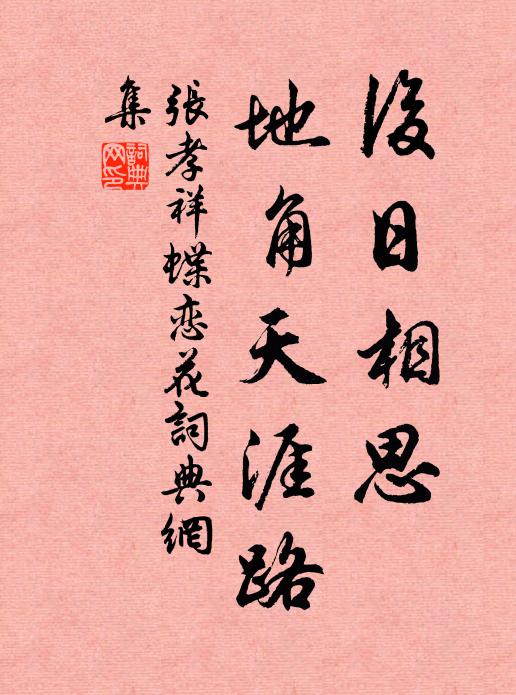 後日相思
地角天涯路
張孝祥蝶恋花詞典網
集
詞典网印